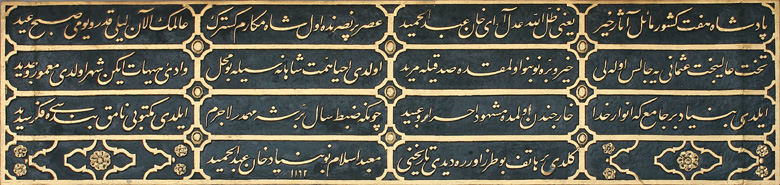 پادشاه هفت کشور مائل آثار خیر یعنی ظل الله عدل آرای خان عبد الحمید اول شاه مکارم کسترک عالمک الآن لیلی قدر و یومی صبح عید
تخت عالیبخت عثمانی یه جالس اوله لی خیر و بره نو بنو اولمقده اولدی احیا همت شاهانه سیله بو محل وادی هیهات ایکن شهر اولدی معمور و جدید
ایلدی بنیاد بر جامع که انوار خدا خارجندن اولمده مشهود احرار و عبید چونکه ضبط سال لاجرم ایلدی مکتوبی نامق بنده سی
كلدی بر هاتف بو طرز اوزره دیدی تاریخنی معبد اسلام نو بنیاد خان عبد الحمید ١١٩٢